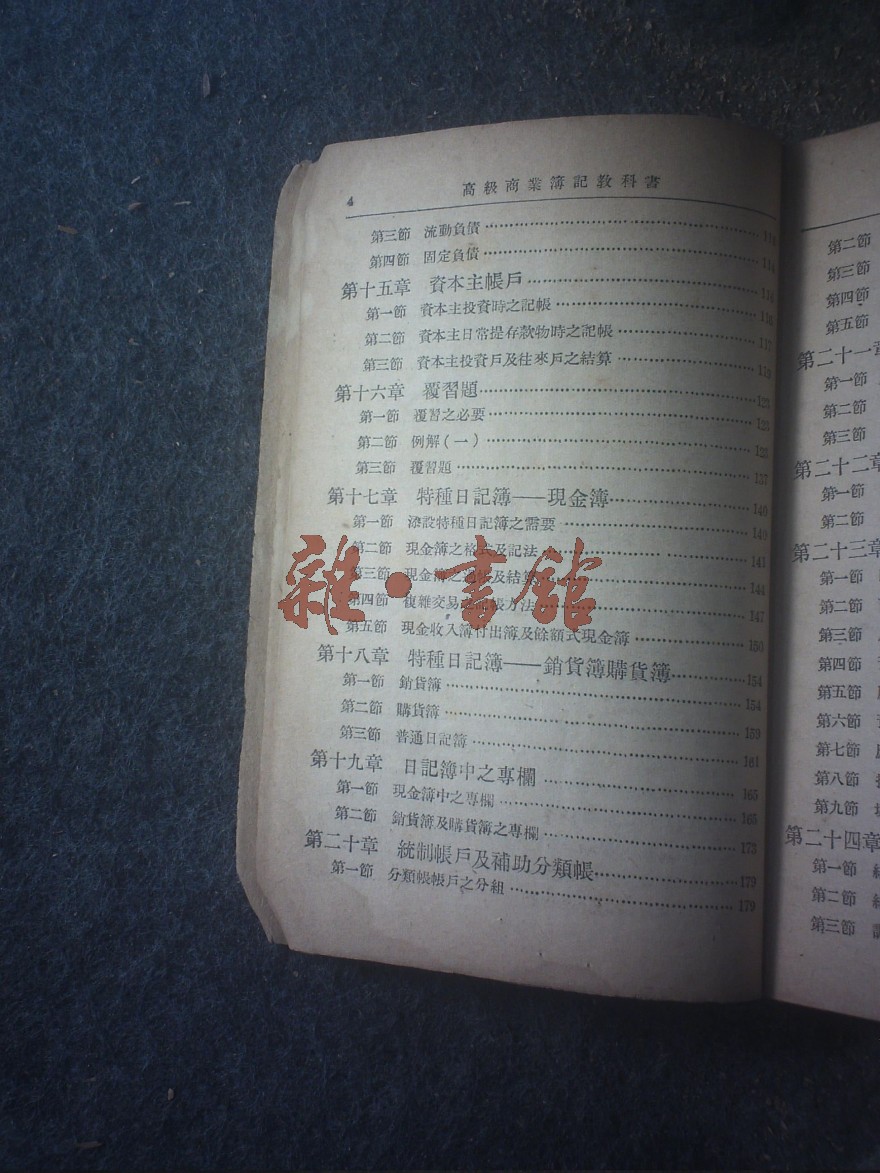 4
高級商業簿記教科書
第三節 流動負債
第四節 固定負債
第十五章 資本主帳戶
第一節 資本主投資時之記帳 116
第二節 資本主日常提存款物時之記帳 117
第三節 資本主投資戶及往來戶之結算 119
第十六章 覆習題 123
第一節 覆習之必要 123
第二節 例解(一) 123
第三節 覆習題 137
第十七章 特種日記簿——現金簿 140
第一節 添設特種日記簿之需要 140
第二節 現金簿之格式及記法 141
第三節 現金簿之過帳及結算 144
第四節 複雜交易之記帳方法 147
第五節 現金收入簿付出簿及餘額式現金簿 150
第十八章 特種日記簿——銷貨簿購貨簿 154
第一節 銷貨簿 154
第二節 購貨簿 159
第三節 普通日記簿 161
第十九章 日記簿中之專欄 165
第一節 現金簿中之專欄 165
第二節 銷貨簿及購貨簿之專欄 173
第二十章 統制帳戶及補助分類帳 179
第一節 分類帳帳戶之分組 179
雜·書館
第二節
第三節
第四節
第五節
第二十一章
第一節
第二節
第三節
第二十二章
第一節
第二節
第二十三章
第一節
第二節
第三節
第四節
第五節
第六節
第七節
第八節
第九節
第二十四章
第一節
第二節
第三節